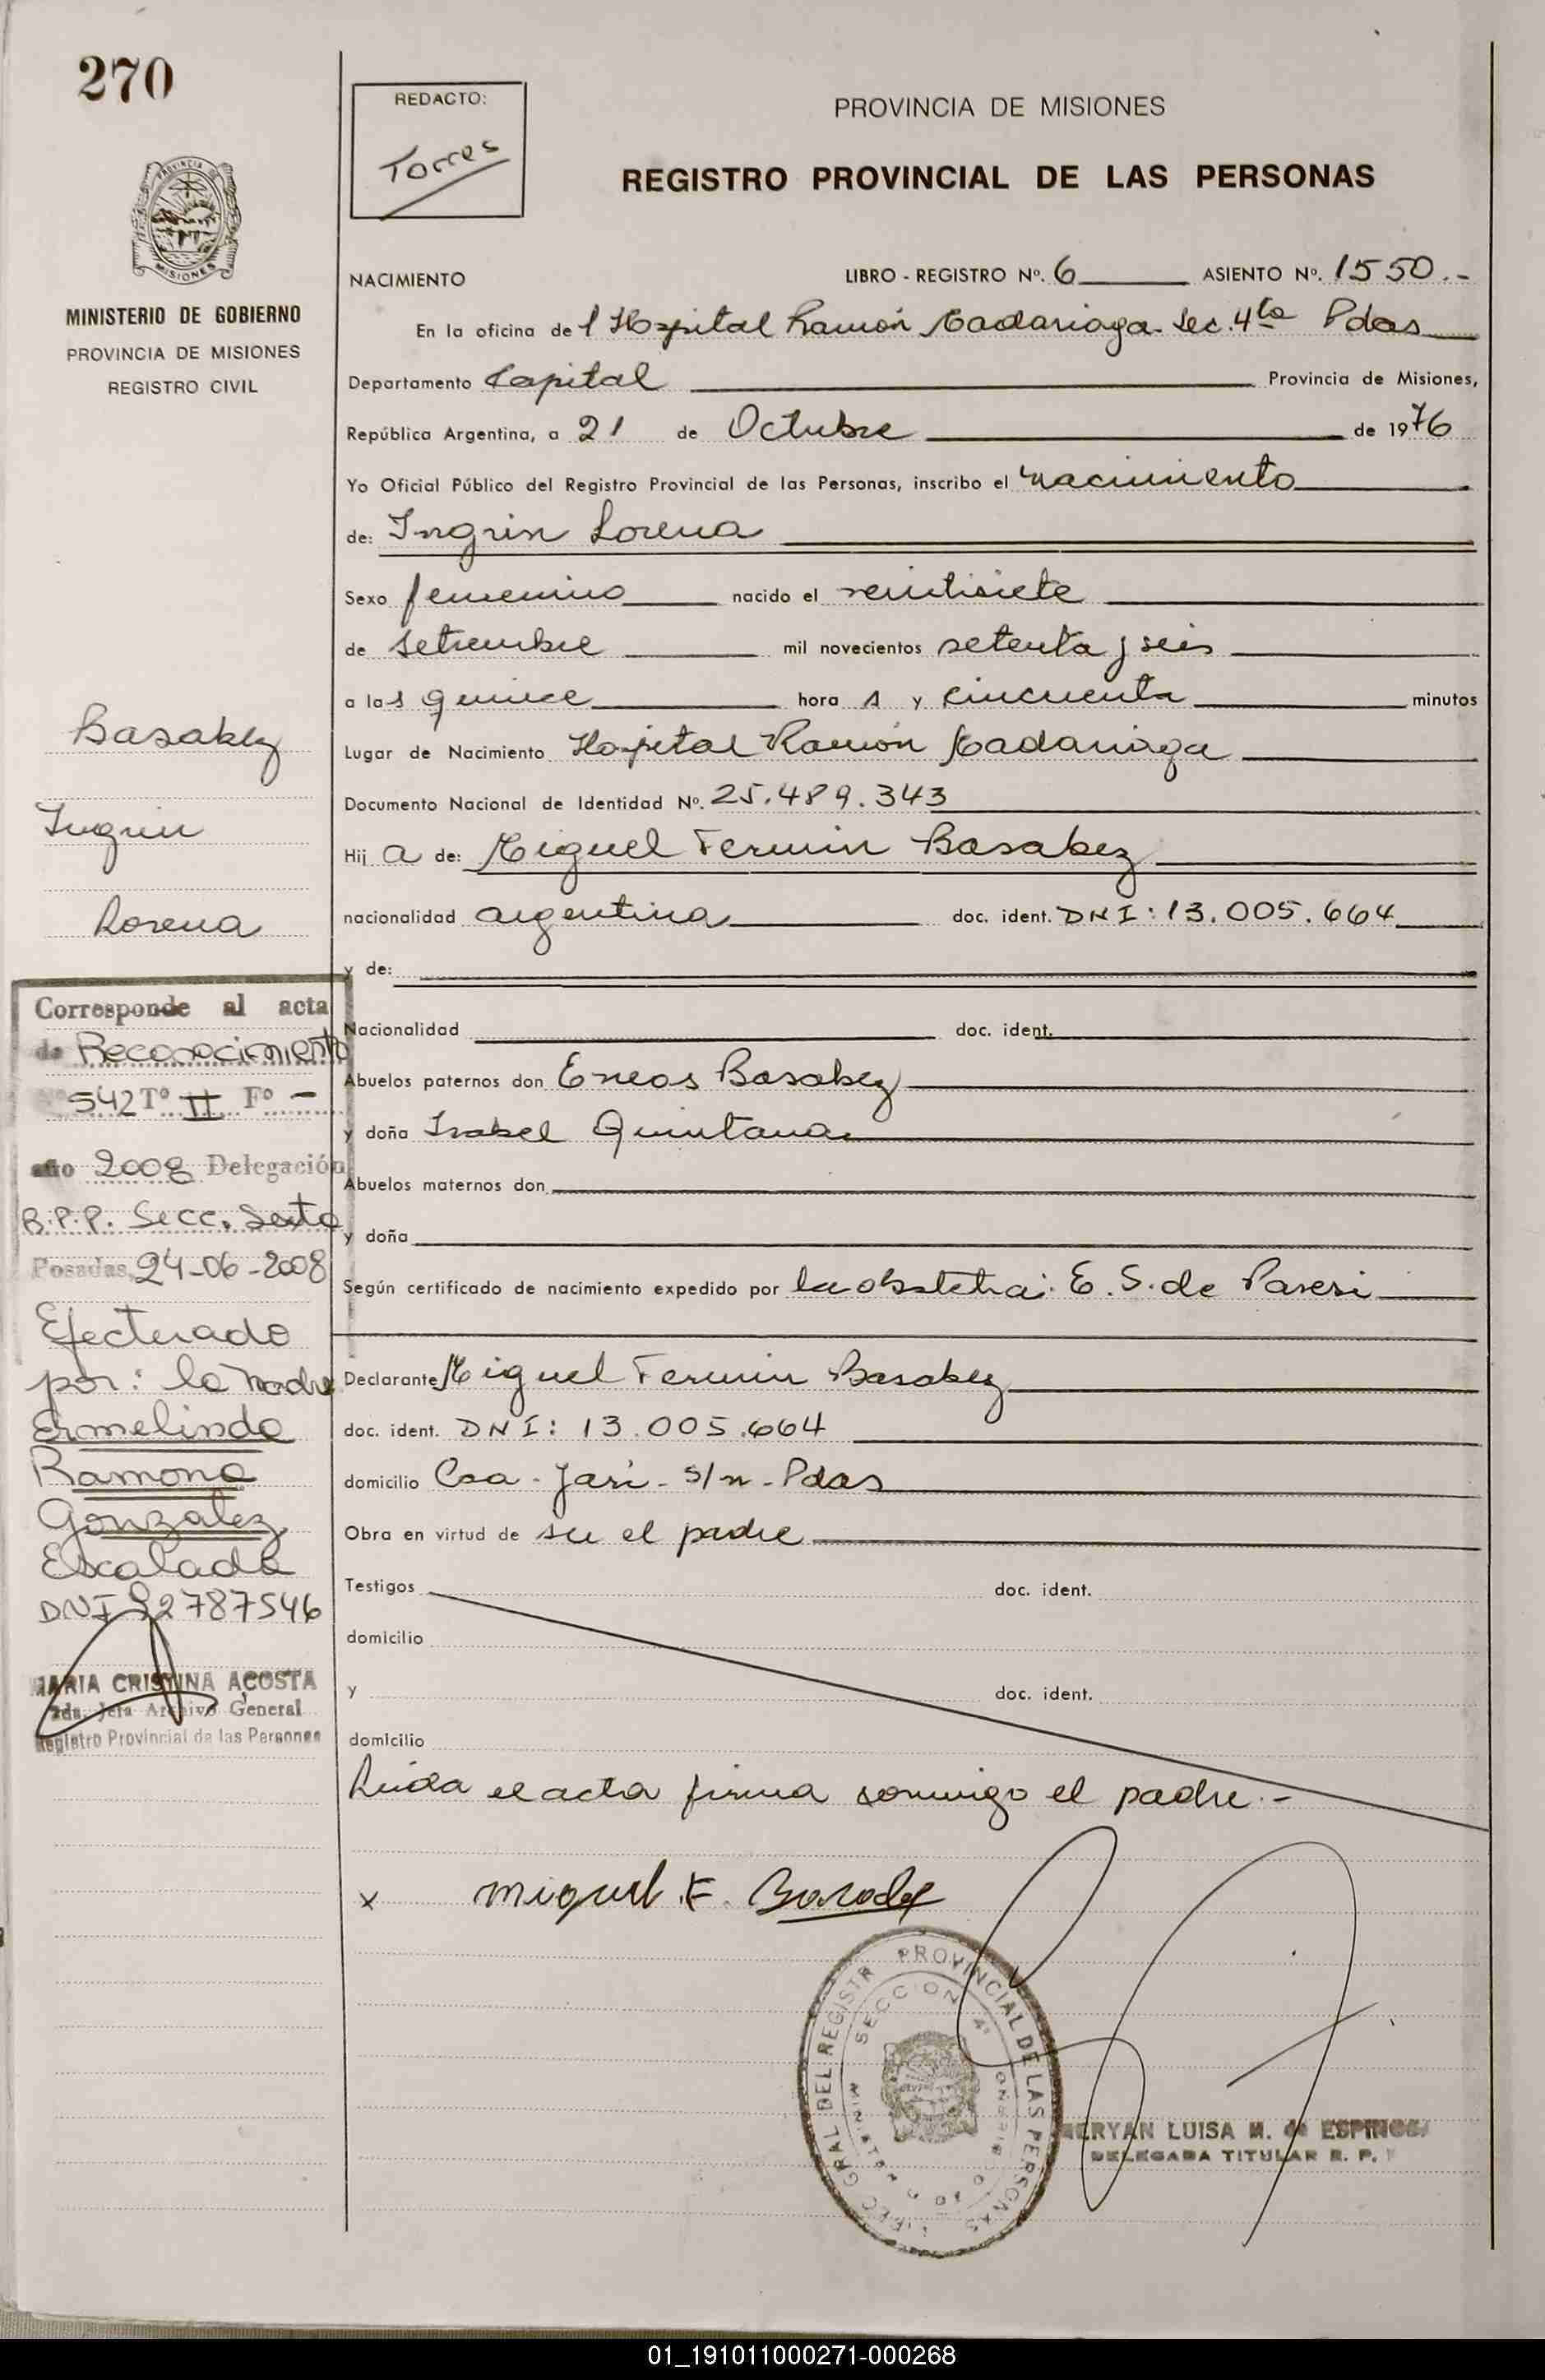 270
REDACTO:
Torres
PROVINCIA DE MISIONES
REGISTRO PROVINCIAL DE LAS PERSONAS
MINISTERIO DE GOBIERNO
PROVINCIA DE MISIONES
REGISTRO CIVIL
NACIMIENTO LIBRO - REGISTRO Nº. 6 ASIENTO Nº. 1550.-
En la oficina del Hospital Ramón Madariaga. Sec. 4ta Pdas
Departamento Capital Provincia de Misiones,
República Argentina, a 21 de Octubre de 1976
Yo Oficial Público del Registro Provincial de las Personas, inscribo el nacimiento
de: Ingrin Lorena
Sexo femenino nacido el veintisiete
de setiembre mil novecientos setenta y seis
a las quince hora s y cincuenta minutos
Lugar de Nacimiento Hospital Ramón Madariaga
Documento Nacional de Identidad Nº. 25.489.343
Hij a de: Miguel Fermin Basabez
nacionalidad argentina doc. ident. DNI: 13.005.664
y de:
Nacionalidad doc. ident.
Abuelos paternos don Eneas Basabez
y doña Isabel Quintana
Abuelos maternos don
y doña
Según certificado de nacimiento expedido por la obstetra: E. S. de Paresi
Declarante Miguel Fermin Basabez
doc. ident. DNI: 13.005.664
domicilio Csa - Jari - S/n - Pdas
Obra en virtud de ser el padre
Testigos doc. ident.
domicilio
y doc. ident.
domicilio
Leida el acta firma conmigo el padre.-
x Miguel F. Basabez
Basabez
Ingrin
Lorena
Corresponde al acta
de Reconocimiento
Nº 542 Tº II Fº -
año 2008 Delegación
R.P.P. Secc. Sexta
Posadas, 24-06-2008
Efectuado
por: la Madre
Ermelinda
Ramona
Gonzalez
Escalada
DNI 22787546
MARIA CRISTINA ACOSTA
2da. Jefa Archivo General
Registro Provincial de las Personas
PROVINCIAL DE LAS PERSONAS
GRAL DEL REGISTR
SECCION 4ª
MERYAN LUISA M. de ESPINOSA
DELEGADA TITULAR R. P. P
01_191011000271-000268